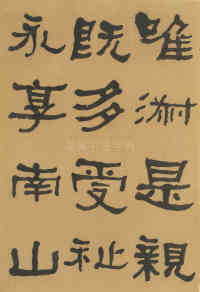 唯淑是親
既多受祉
永享南山